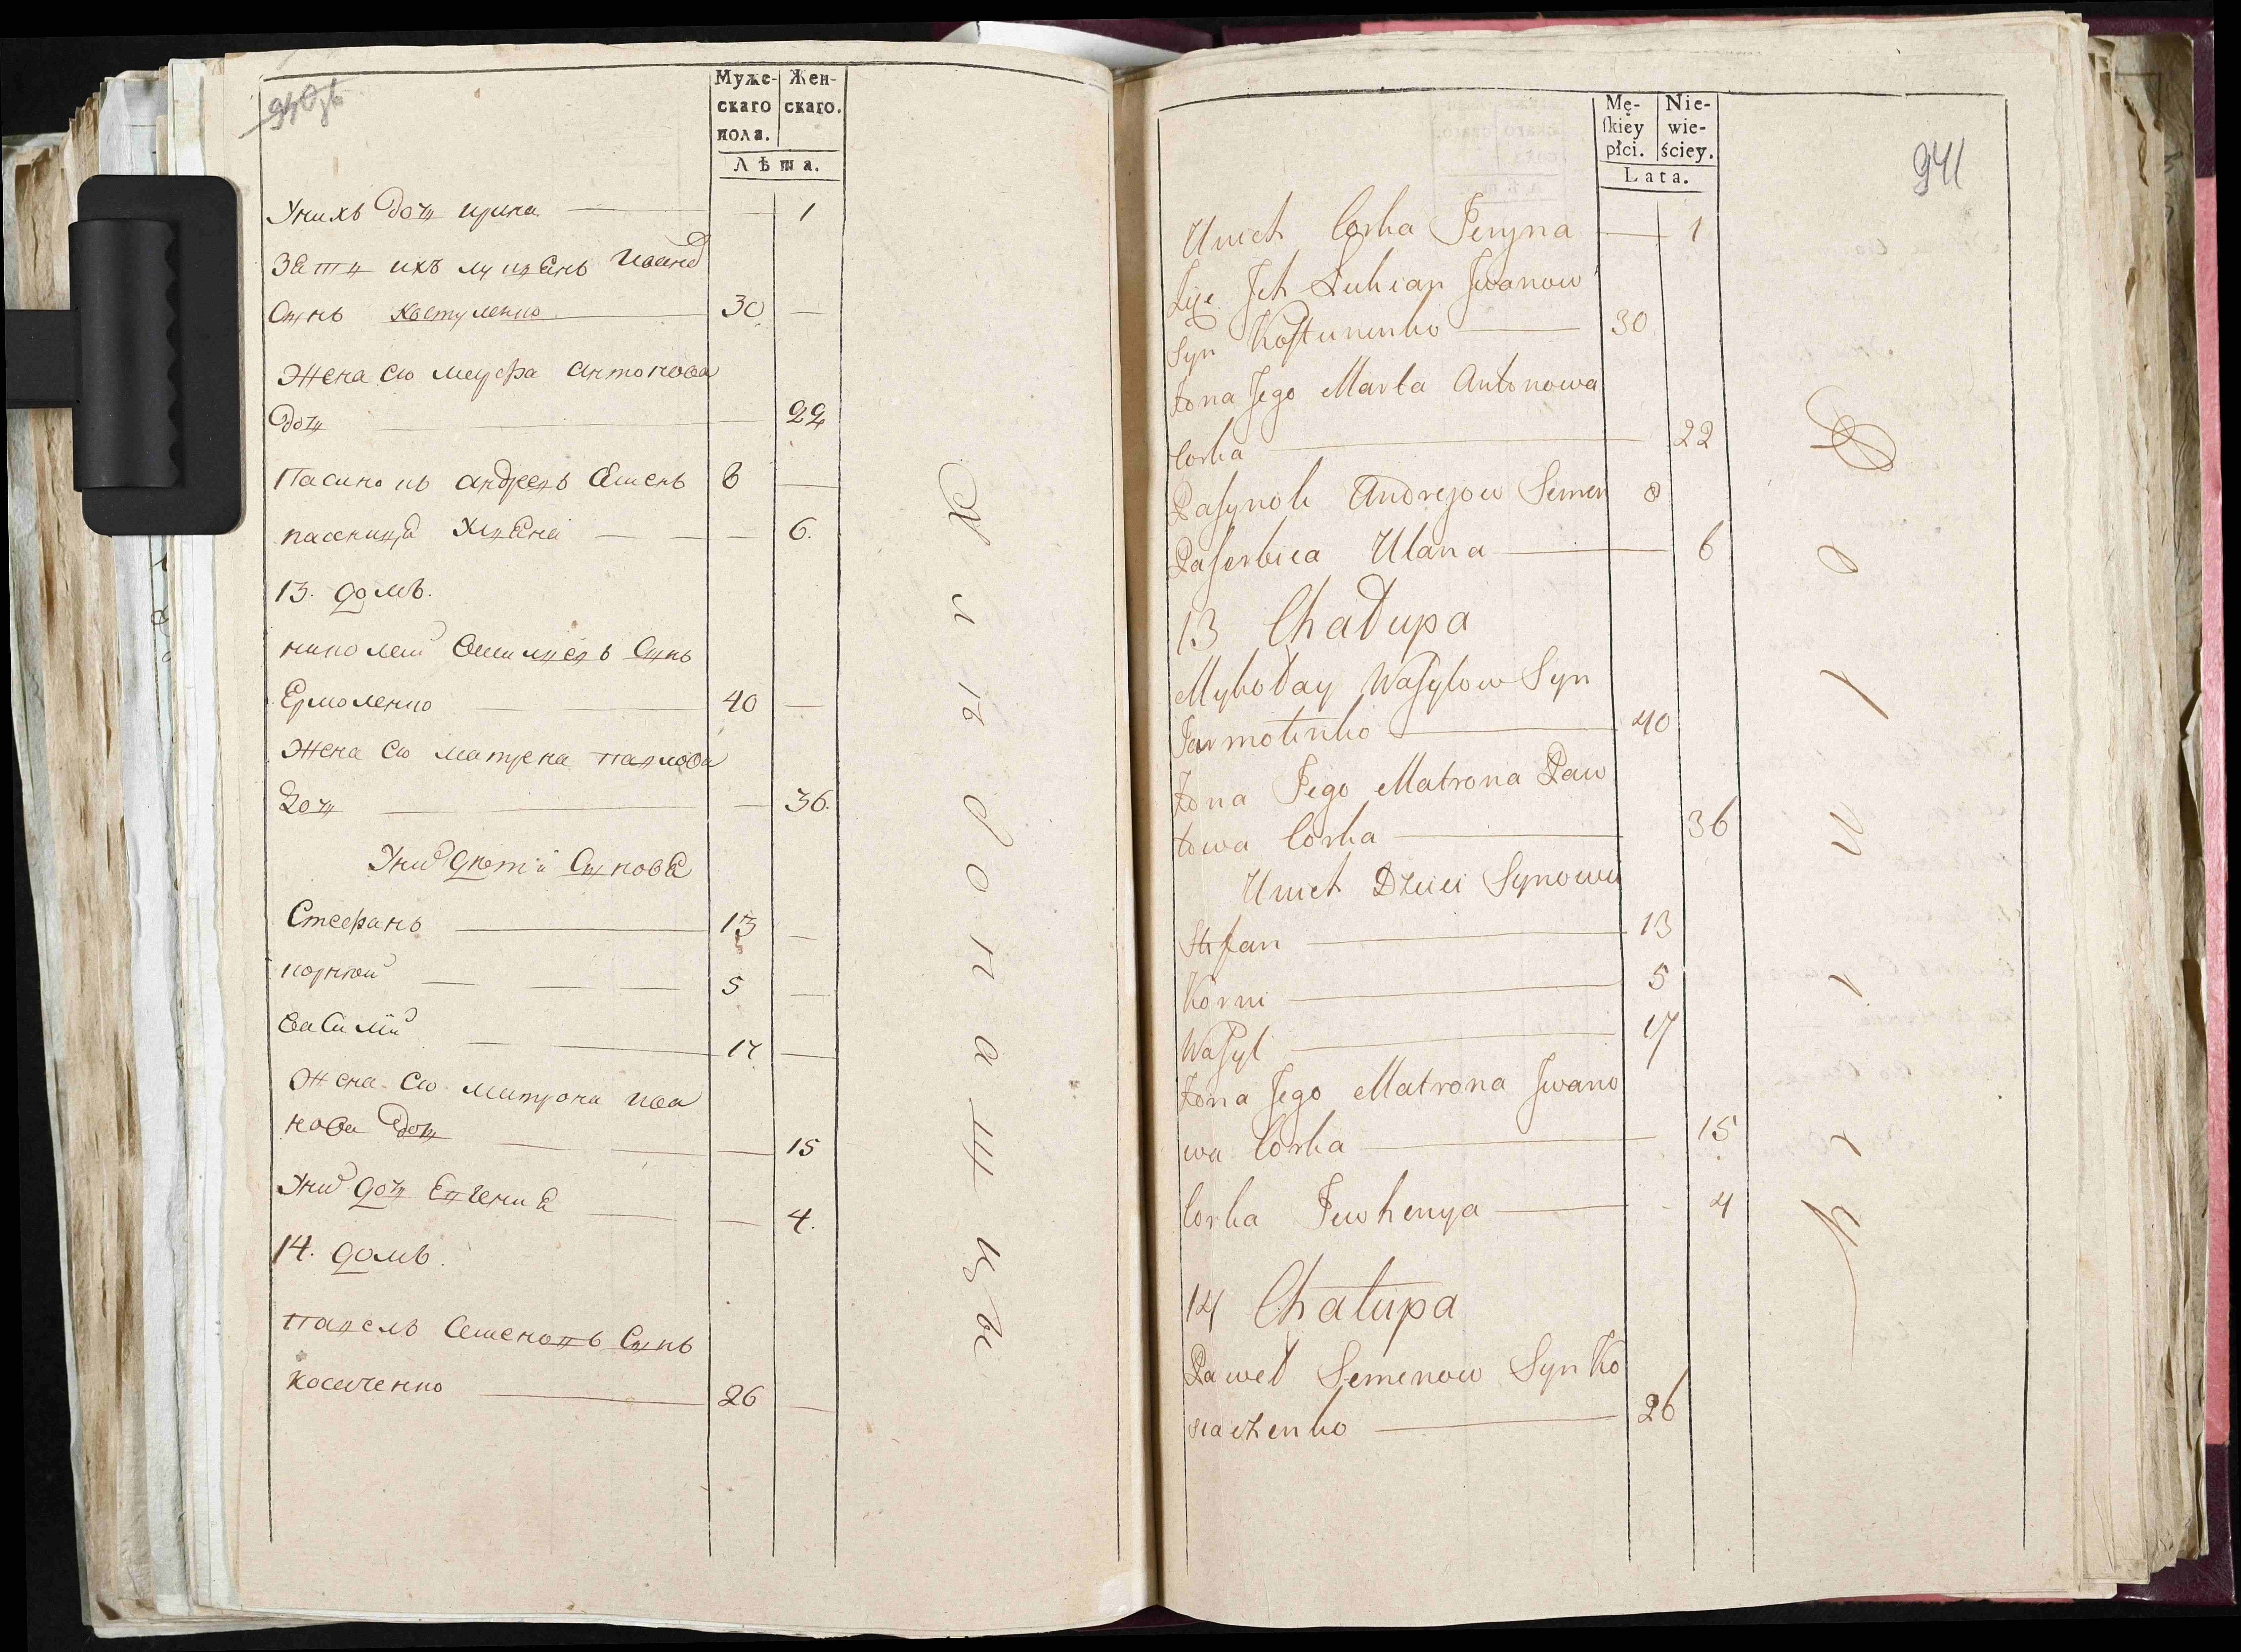 940об
Муже- Жен-
скаго скаго.
пола.
Лѣта.
Унихъ дочь ирина 1
Зять ихъ лукіянъ Ивановъ
Сынъ Костуленко 30
Жена его марфа антонова
дочь 22
Пасинокъ андреевъ Семенъ 8
пасеница Улiяна 6.
13. домъ.
николай Василиевъ Сынъ
Ермоленко 40
Жена его матрена павлова
дочь 36.
Унихъ дети Сынова
Стефанъ 13
корней 5
василій 17
Жена его матрона ива
нова дочь 15
Унихъ дочь Евгения 4.
14. домъ.
павелъ Семеновъ Сынъ
Косяченко 26
941
Mę- Nie-
ſkiey wie-
płci. ściey.
Lata.
Unich Corka Jeryna 1
Zięc Jch Lukian Jwanow
Syn Koſtunenko 30
Żona Jego Marta Antonowa
Corka 22
Paſynok Andrejow Semen 8
Paſerbica Ulana 6
13 Chałupa
Mykołay Waſylow Syn
Jarmolenko 40
Żona Jego Matrona Paw
łowa Corka 36
Unich Dzieci Synowie
Stefan 13
Korni 5
Waſyl 17
Żona Jego Matrona Jwano
wa Corka 15
Corka Jewhenya 4
14 Chałupa
Paweł Semenow Syn Ko
siaczenko 26